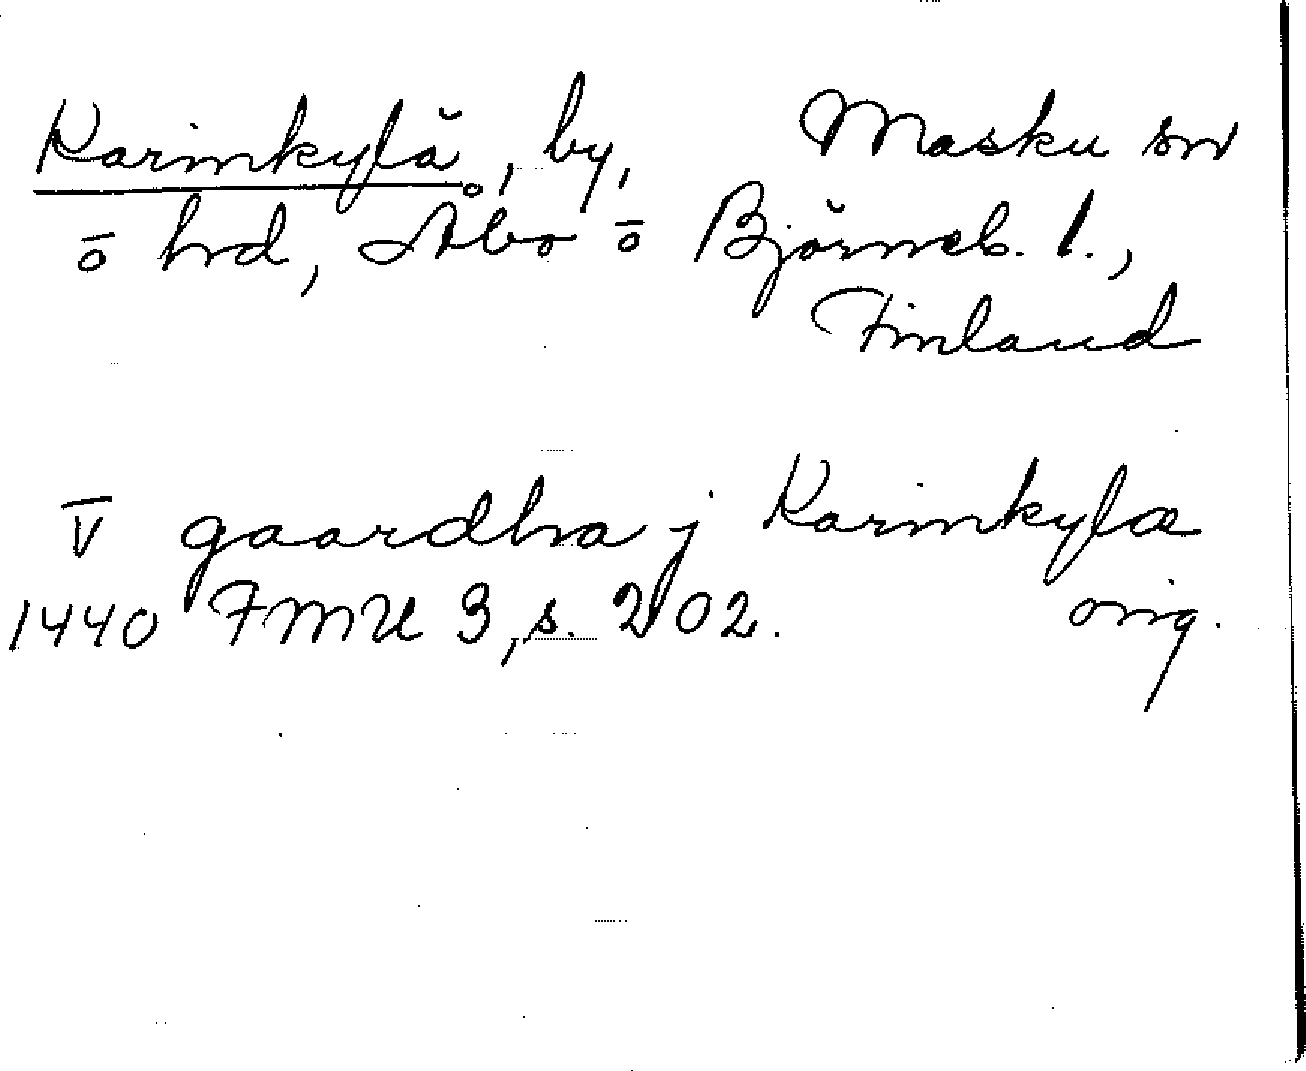 Karinkylä, by, Masku sn
o hrd, Åbo o Björneb. l.,
Finland
V gaardha j Karinkylæ
1440 FMU 3, s. 202. orig.